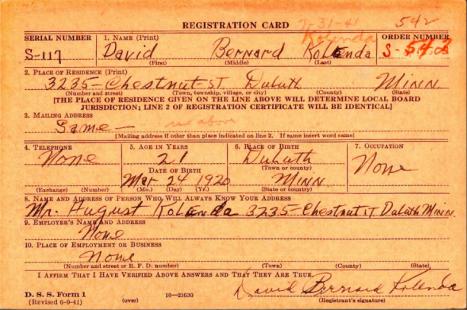 REGISTRATION CARD 7-31-41 542
SERIAL NUMBER 1. NAME (Print) Kolenda ORDER NUMBER
S-117 David Bernard Kolenda S-
(First) (Middle) (Last)
2. PLACE OF RESIDENCE (Print)
3235-Chestnut ST Duluth Minn
(Number and street) (Town, township, village, or city) (County) (State)
[THE PLACE OF RESIDENCE GIVEN ON THE LINE ABOVE WILL DETERMINE LOCAL BOARD
JURISDICTION; LINE 2 OF REGISTRATION CERTIFICATE WILL BE IDENTICAL]
3. MAILING ADDRESS
Same - as above
[Mailing address if other than place indicated on line 2. If same insert word same]
4. TELEPHONE 5. AGE IN YEARS 6. PLACE OF BIRTH 7. OCCUPATION
None 21 Duluth None
DATE OF BIRTH (Town or county)
Mar 24 1920 Minn
(Exchange) (Number) (Mo.) (Day) (Yr.) (State or country)
8. NAME AND ADDRESS OF PERSON WHO WILL ALWAYS KNOW YOUR ADDRESS
Mr. August Kolenda 3235-Chestnut ST Duluth Minn.
9. EMPLOYER'S NAME AND ADDRESS
None
10. PLACE OF EMPLOYMENT OR BUSINESS
None
(Number and street or R. F. D. number) (Town) (County) (State)
I AFFIRM THAT I HAVE VERIFIED ABOVE ANSWERS AND THAT THEY ARE TRUE.
D. S. S. Form 1 David Bernard Kolenda
(Revised 6-9-41) (over) 16-21630 (Registrant's signature)